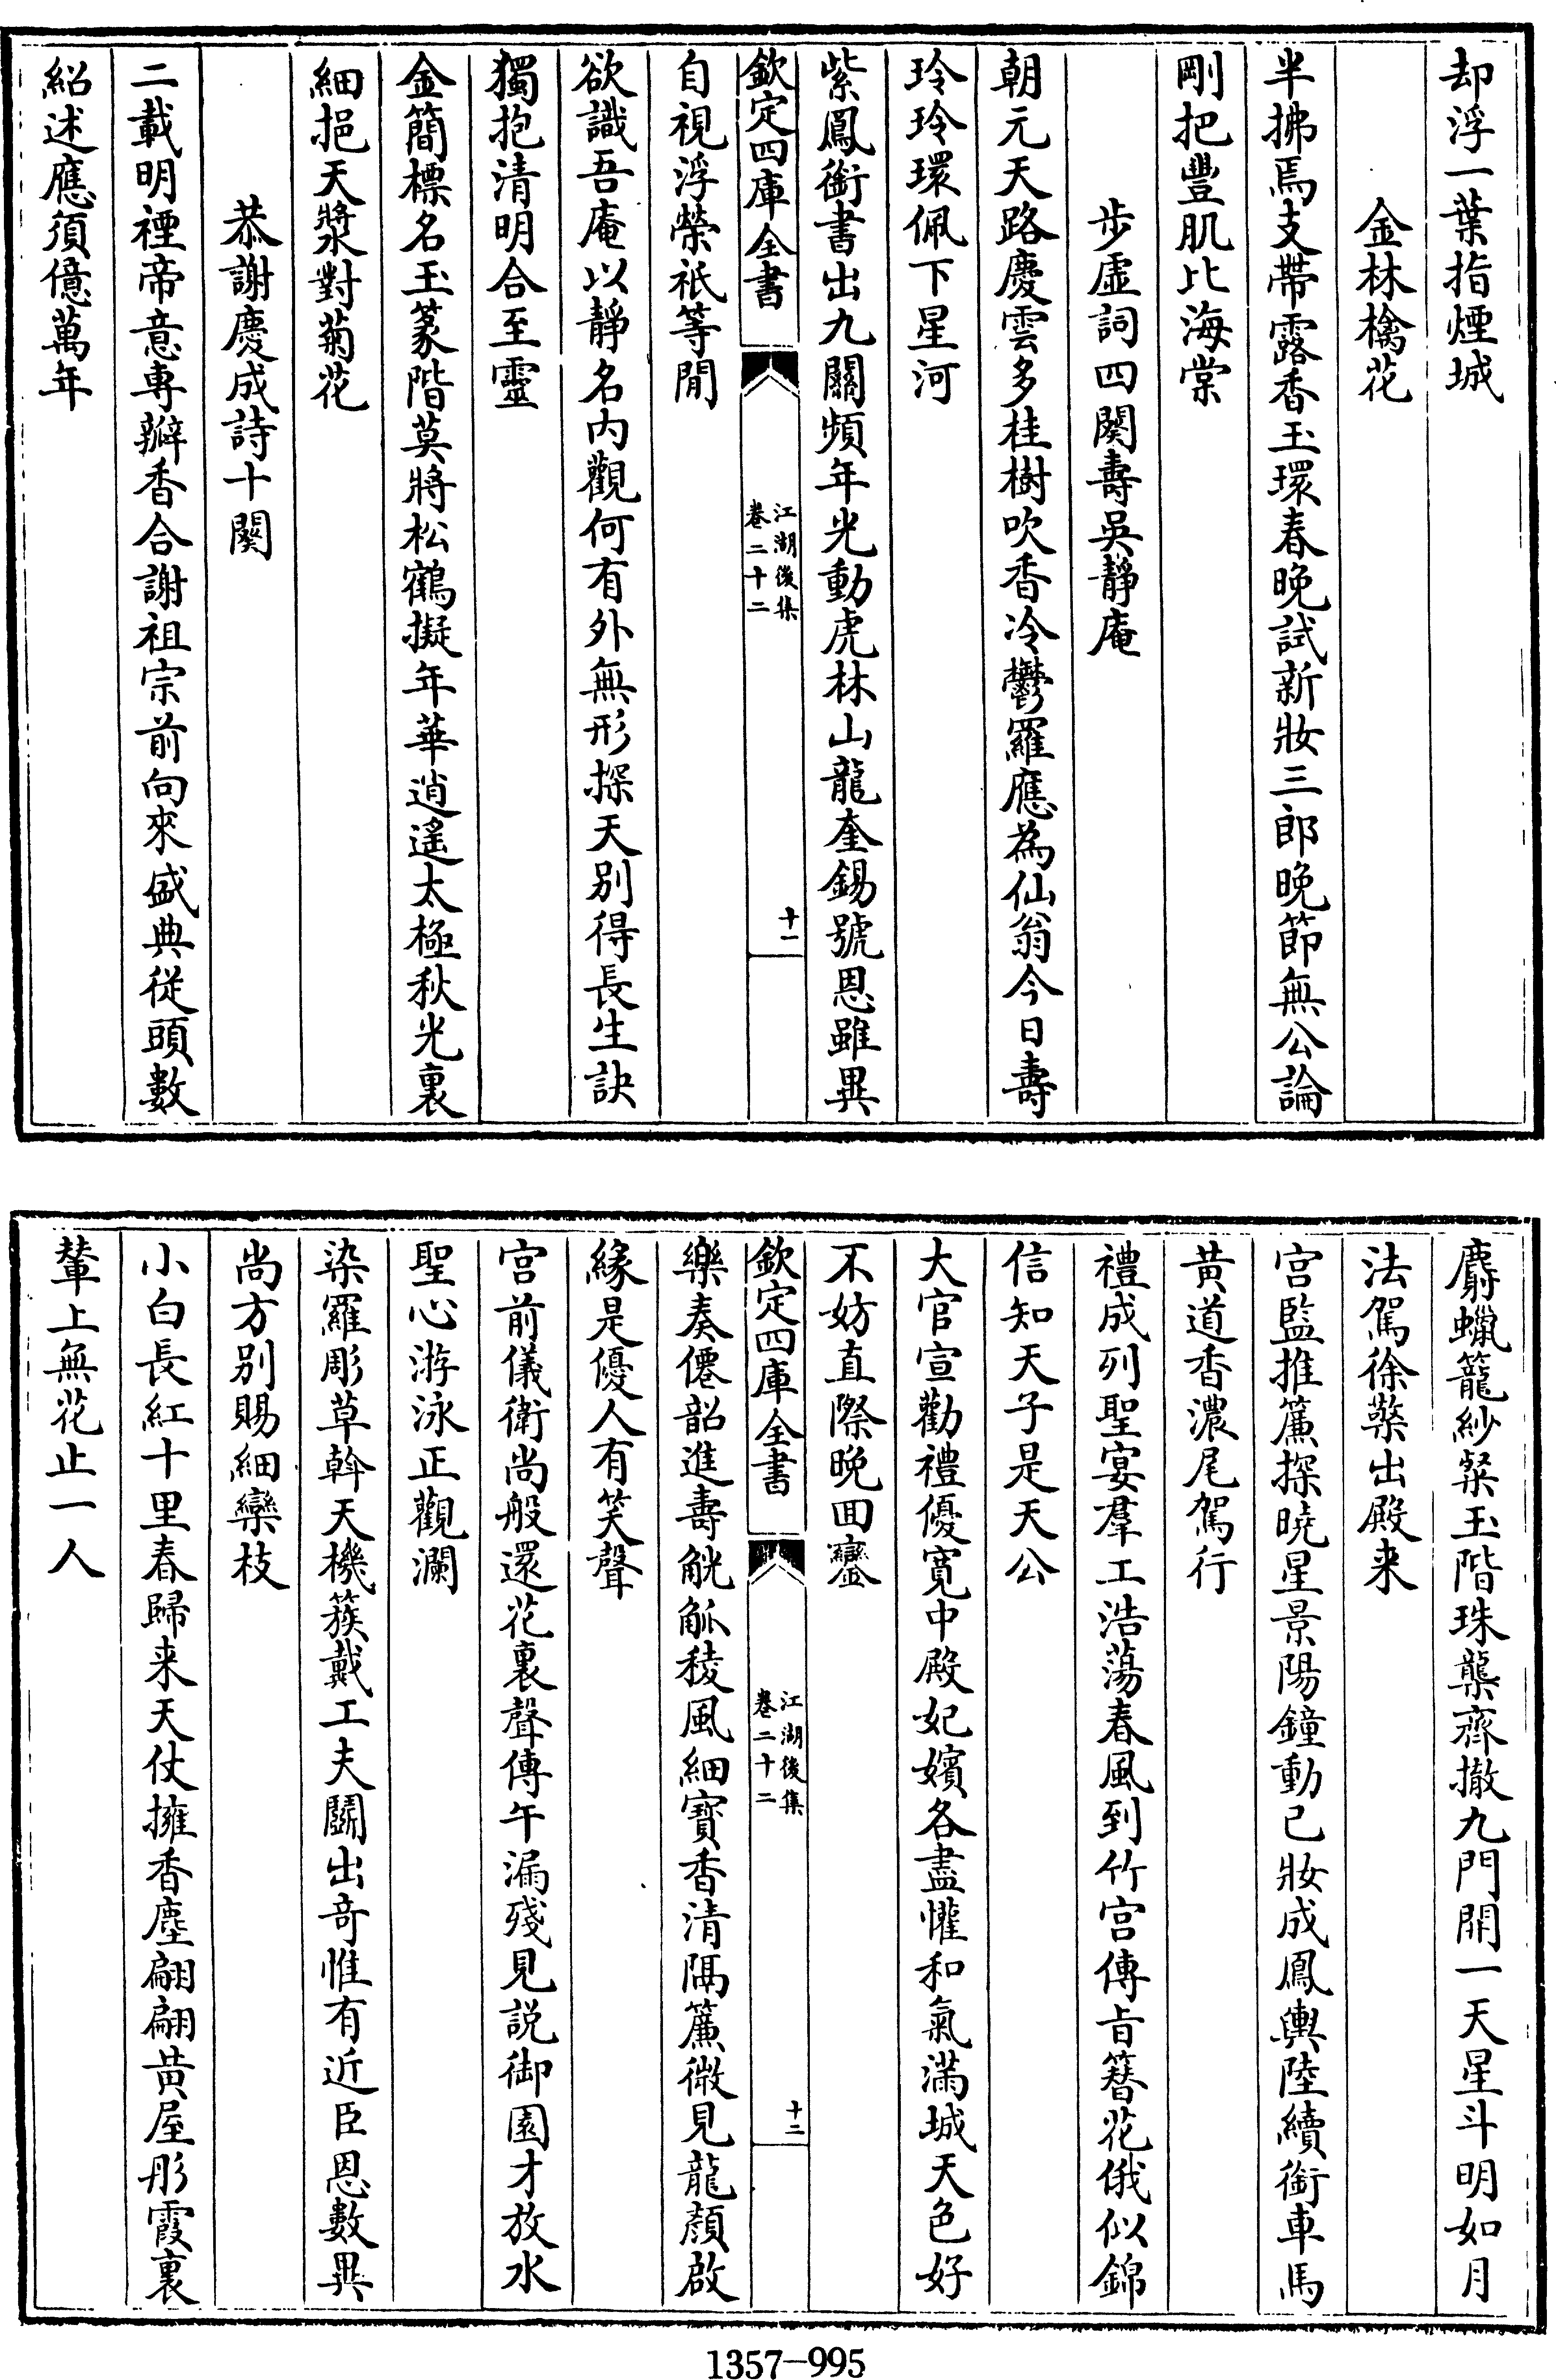 却浮一葉指煙城
金林檎花
半拂焉支帶露香玉環春晚試新妝三郎晚節無公論
剛把豐肌比海棠
步虛詞四闋壽吳靜庵
朝元天路慶雲多桂樹吹香冷鬱羅應為仙翁今日壽
玲玲環佩下星河
紫鳳銜書出九關頻年光動虎林山龍奎錫號恩雖異
欽定四庫全書
江湖後集
卷二十二
十一
自視浮榮祇等閒
欲識吾庵以靜名內觀何有外無形探天别得長生訣
獨抱清明合至靈
金簡標名玉篆階莫將松鶴擬年華逍遙太極秋光裏
細挹天漿對菊花
恭謝慶成詩十闋
二載明禋帝意專辦香合謝祖宗前向來盛典從頭數
紹述應須億萬年
麝蠟籠紗粲玉階珠龔齊撤九門開一天星斗明如月
法駕徐蘂出殿来
宫監推簾探曉星景陽鐘動已妝成鳳輿陸續銜車馬
黄道香濃尾駕行
禮成列聖宴羣工浩蕩春風到竹宫傳旨簪花俄似錦
信知天子是天公
大官宣勸禮優寛中殿妃嬪各盡懽和氣滿城天色好
不妨直際晚囬鑾
欽定四庫全書
江湖後集
卷二十二
十二
樂奏僊韶進壽觥觚稜風細寳香清隔簾微見龍顔啟
緣是優人有笑聲
宫前儀衛尚般還花裏聲傳午漏殘見説御園才放水
聖心游泳正觀瀾
染羅彫草斡天機簇戴工夫鬭出奇惟有近臣恩數異
尚方别賜細欒枝
小白長紅十里春歸来天仗擁香塵翩翩黄屋彤霞裏
輦上無花止一人
1357-995